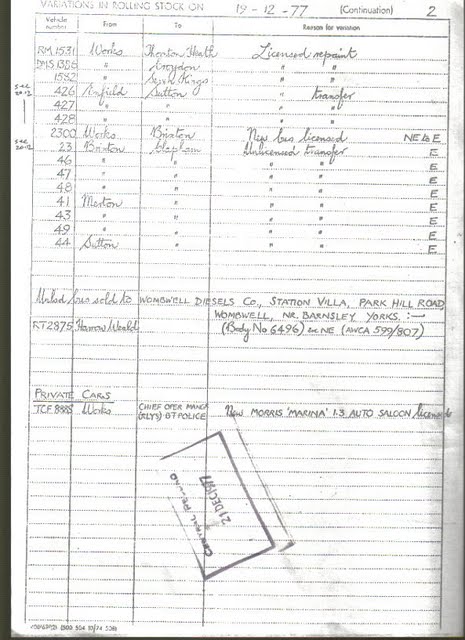 VARIATIONS IN ROLLING STOCK ON 19-12-77 (Continuation) 2
Vehicle number From To Reason for variation
RM 1531 Works Thornton Heath Licensed repaint
DMS 1386 " Croydon " "
1592 " Seven Kings " "
426 Enfield Sutton " transfer
427 " " " "
428 " " " "
2300 Works Brixton New bus licensed NE to E
23 Brixton Clapham Unlicensed transfer E
46 " " " " E
47 " " " " E
48 " " " " E
41 Merton " " " E
43 " " " " E
49 " " " " E
44 Sutton " " " E
Unlsd bus sold to WOMBWELL DIESELS CO., STATION VILLA, PARK HILL ROAD,
WOMBWELL, NR. BARNSLEY YORKS. :—
RT2875 Harrow Weald (Body No 6496) ex NE (AWCA 599/807)
PRIVATE CARS
Works CHIEF OPER MANGR (RLYS) 67 POLICE New MORRIS 'MARINA' 1·3 AUTO SALOON, licensed
CENTRAL RECORD
21 DEC 1977